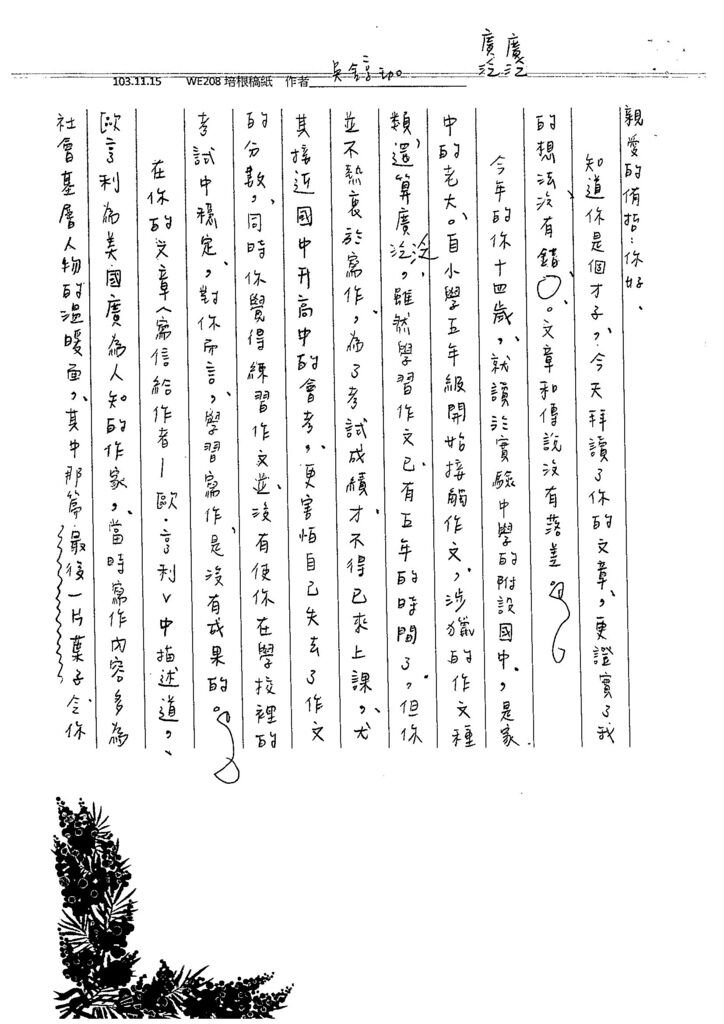 廣泛
廣泛
103.11.15 WE208 培根稿紙 作者 吳
親愛的侑哲：你好、
知道你是個才子，今天拜讀了你的文章，更證實了我
的想法沒有錯。文章和傳說沒有落差。
今年的你十四歲，就讀於實驗中學的附設國中，是家
中的老大。自小學五年級開始接觸作文，涉獵的作文種
類，還算廣泛，雖然學習作文已有五年的時間了，但你
並不熱衷於寫作，為了考試成績才不得已來上課，尤
其接近國中升高中的會考，更害怕自己失去了作文
的分數，同時你覺得練習作文並沒有使你在學校裡的
考試中穩定，對你而言，學習寫作是沒有成果的。
在你的文章＜寫信給作者—歐．亨利＞中描述道，
歐亨利為美國廣為人知的作家，當時寫作內容多為
社會基層人物的溫暖面，其中那篇最後一片葉子令你